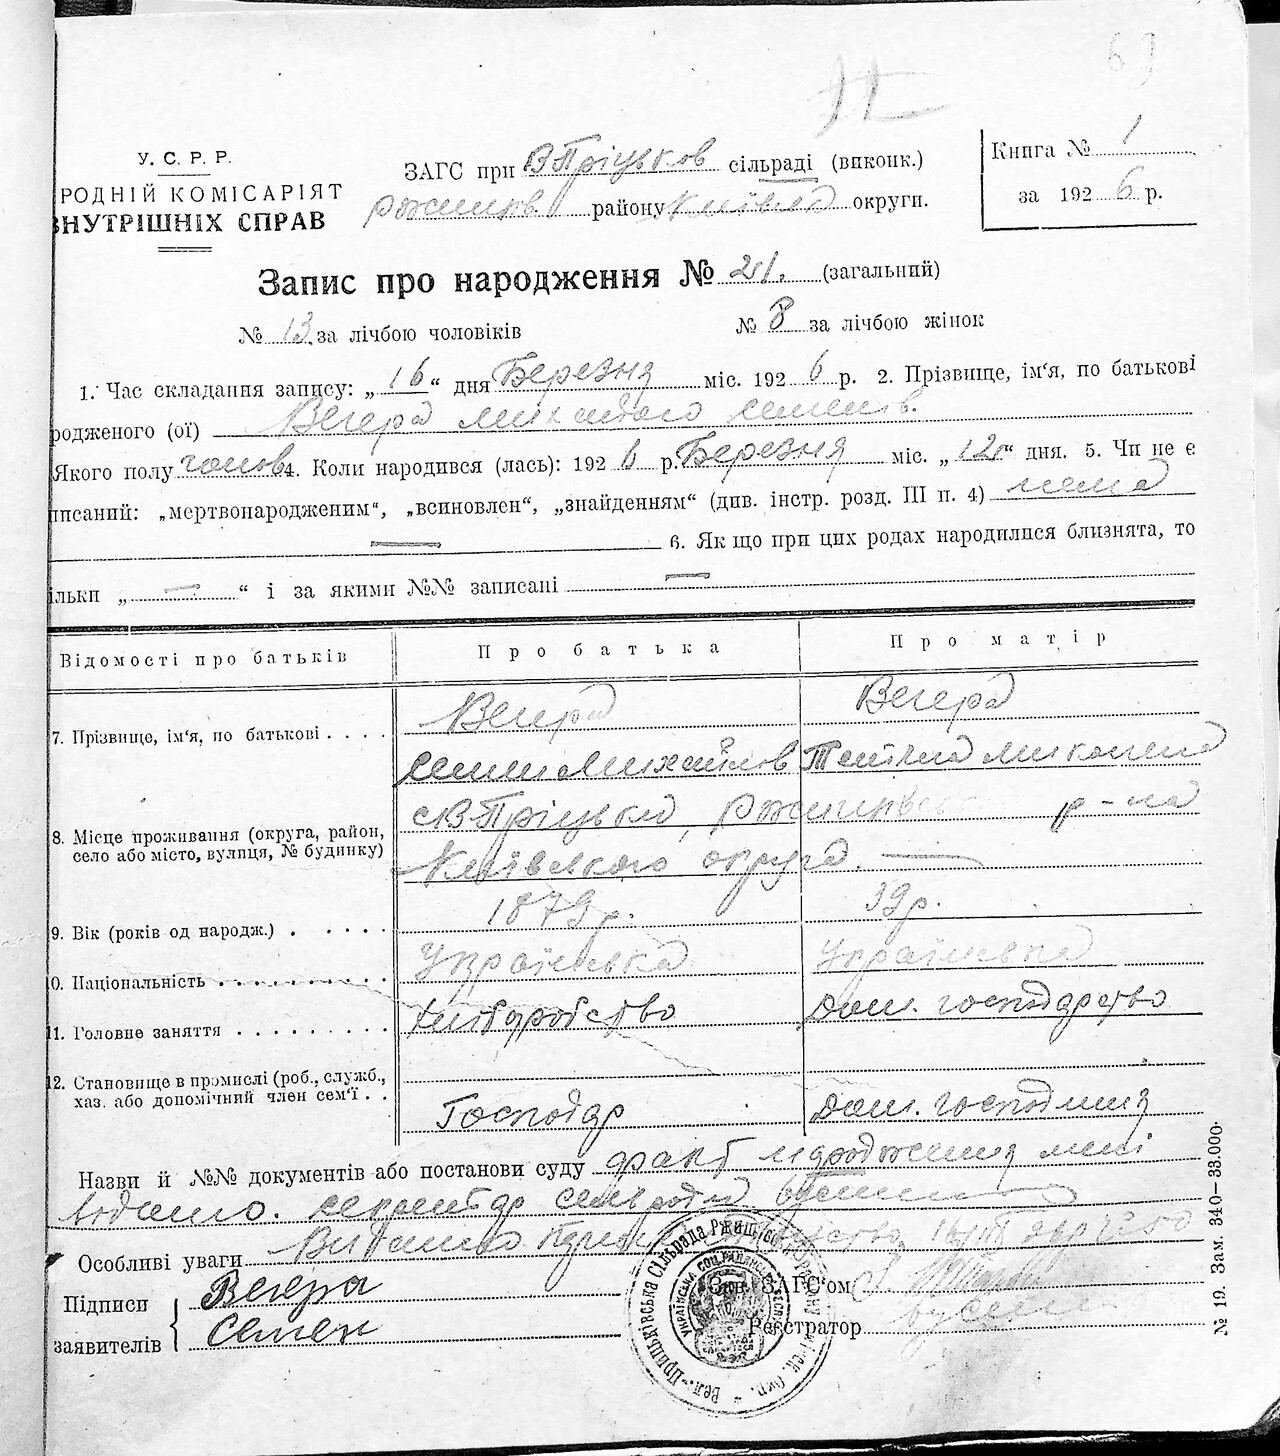 69
У. С. Р. Р.
РОДНІЙ КОМІСАРІЯТ
ВНУТРІШНІХ СПРАВ
ЗАГС при ВПріцьков сільраді (виконк.)
району Київськ округи.
Книга № 1
за 1926 р.
Запис про народження № 21. (загальний)
№ 13. за лічбою чоловіків № 8 за лічбою жінок
1. Час складання запису: „16“ дня Березня міс. 1926 р. 2. Прізвище, ім'я, по батькові
родженого (ої) Вегера
Якого полу чолов 4. Коли народився (лась): 1926 р. Березня міс. „12“ дня. 5. Чи не є
писаний: „мертвонародженим“, „всиновлен“, „знайденням“ (див. інстр. розд. III п. 4) нема
6. Якщо при цих родах народилися близнята, то
ільки „ — “ і за якими №№ записані —
Відомості про батьків Про батька Про матір
Вегера Вегера
7. Прізвище, ім'я, по батькові . . . .
Семен Михайлов Тетіяна Миколаєв
8. Місце проживання (округа, район, село або місто, вулиця, № будинку)
с ВПріцьки, р-на
Київського округа. —
9. Вік (років од народж.) . . . . . 1879 р. 39 р.
0. Національність . . . . . . . . . . Українська Українська
11. Головне заняття . . . . . . . . . Хліборобство Дом. господарство
12. Становище в промислі (роб., служб.,
хаз. або допомічний член сем'ї . . Господар Дом. господиня
Назви й №№ документів або постанови суду факт народження мені
відомо. секретар сельради
Особливі уваги Видано
Підписи заявителів { Вегера
Семен
Зав. ЗАГС'ом
Реєстратор
Вел.-Прицьківська сільрада Ржищ
№ 19. Зам. 340—33.000.